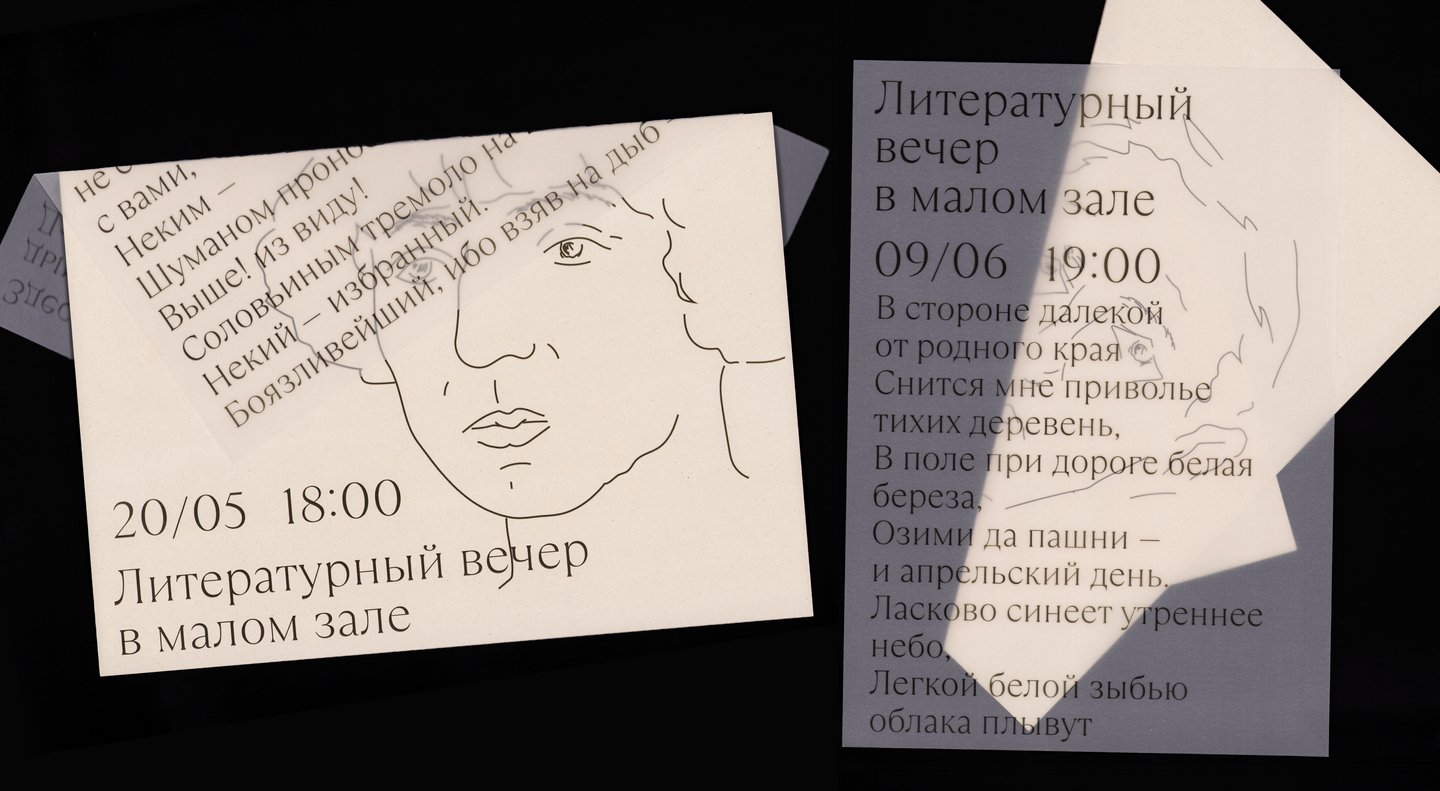 не
с вами,
Неким –
Шуманом
Выше! из виду!
Соловьиным тремоло на
Некий – избранный.
Боязливейший, ибо взяв на дыб –
20/05 18:00
Литературный вечер
в малом зале
Литературный
вечер
в малом зале
09/06 19:00
В стороне далекой
от родного края
Снится мне приволье
тихих деревень,
В поле при дороге белая
береза,
Озими да пашни –
и апрельский день.
Ласково синеет утреннее
небо,
Легкой белой зыбью
облака плывут